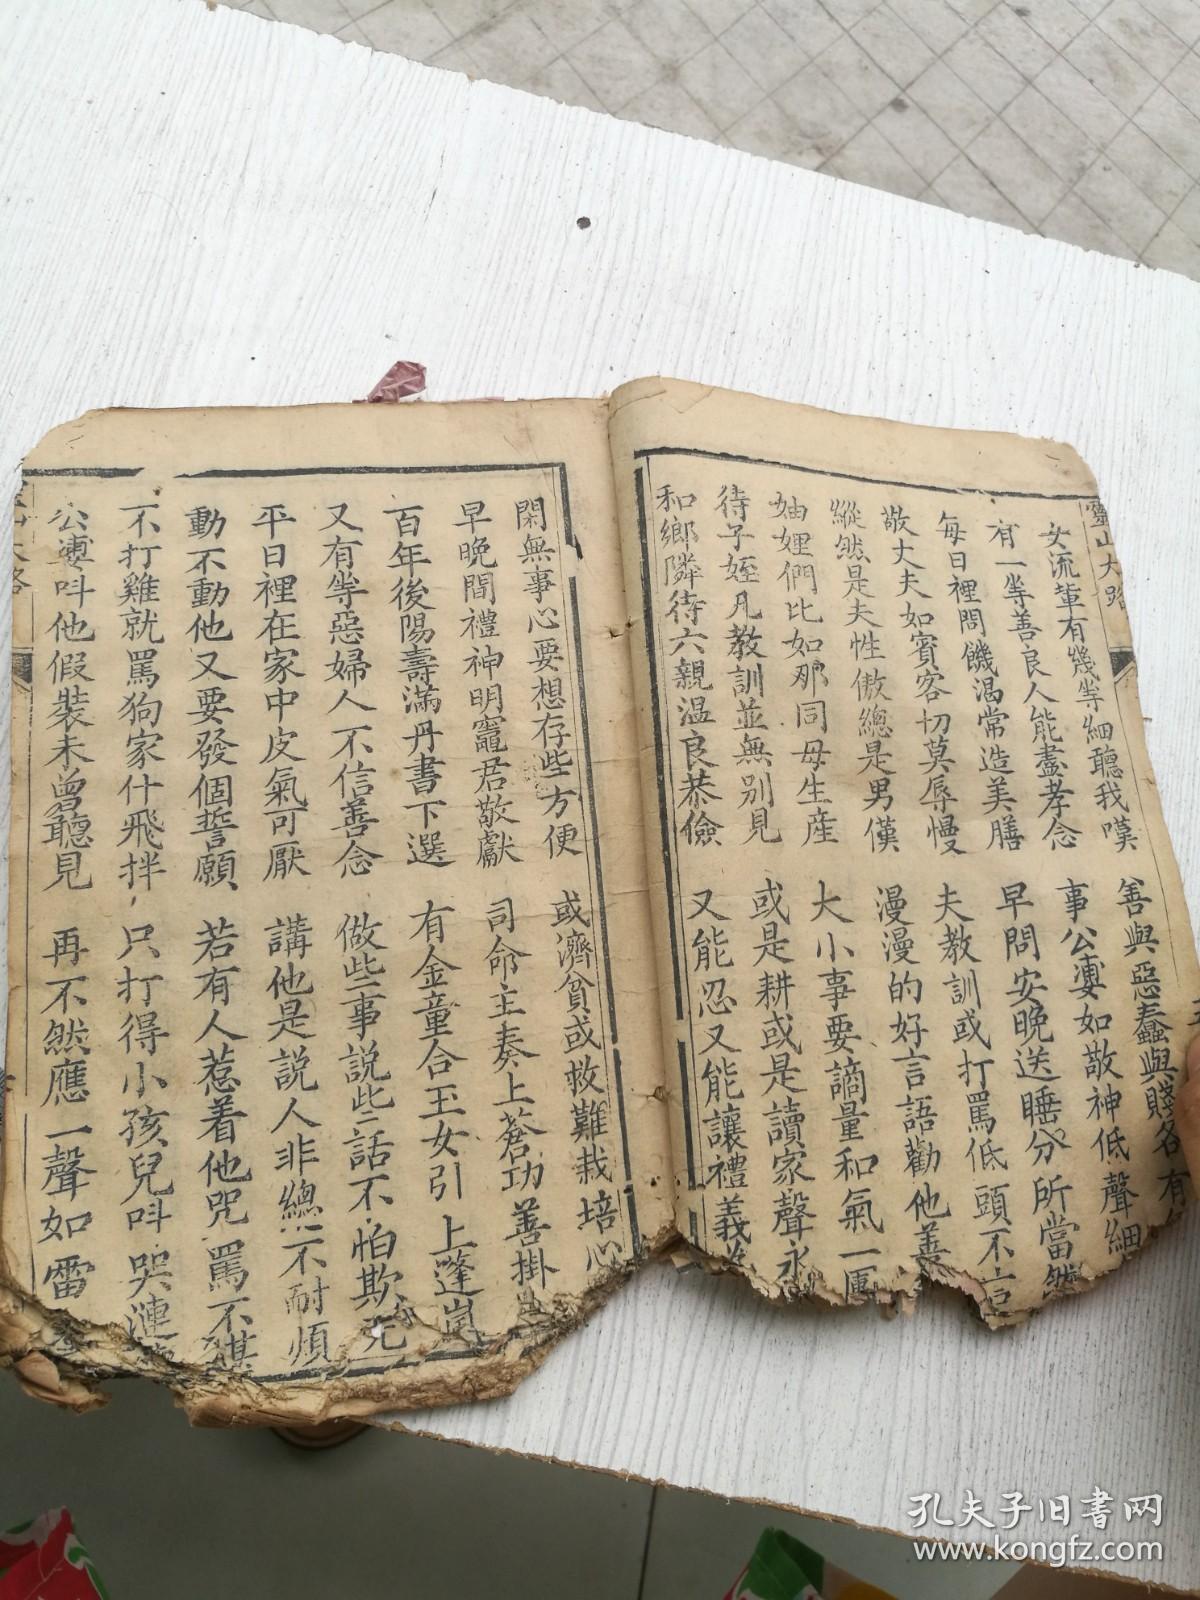 靈山大路
女流輩有幾等細聽我嘆 善與惡蠢與賤各有
有一等善良人能盡孝念 事公婆如敬神低聲細
每日裡問饑渴常造美膳 早問安晚送睡分所當然
敬丈夫如賓客切莫辱慢 夫教訓或打罵低頭不言
縱然是夫性傲總是男僕 漫漫的好言語勸他善
妯娌們比如那同母生產 大小事要謫量和氣一團
待子姪凡教訓並無別見 或是耕或是讀家聲永
和鄉隣待六親温良恭儉 又能忍又能讓禮義
閑無事心要想存些方便 或濟貧或救難栽培心
早晚間禮神明竈君敬獻 司命主奏上蒼功善掛
百年後陽壽滿丹書下選 有金童合玉女引上蓬
又有等惡婦人不信善念 做些事說些話不怕欺
平日裡在家中皮氣可厭 講他是說人非總不耐煩
動不動他又要發個誓願 若有人惹着他咒罵不
不打雞就罵狗家什飛拌 只打得小孩兒呌哭漣
公婆呌他假裝未曾聽見 再不然應一聲如雷
孔夫子旧书网
www.kongfz.com